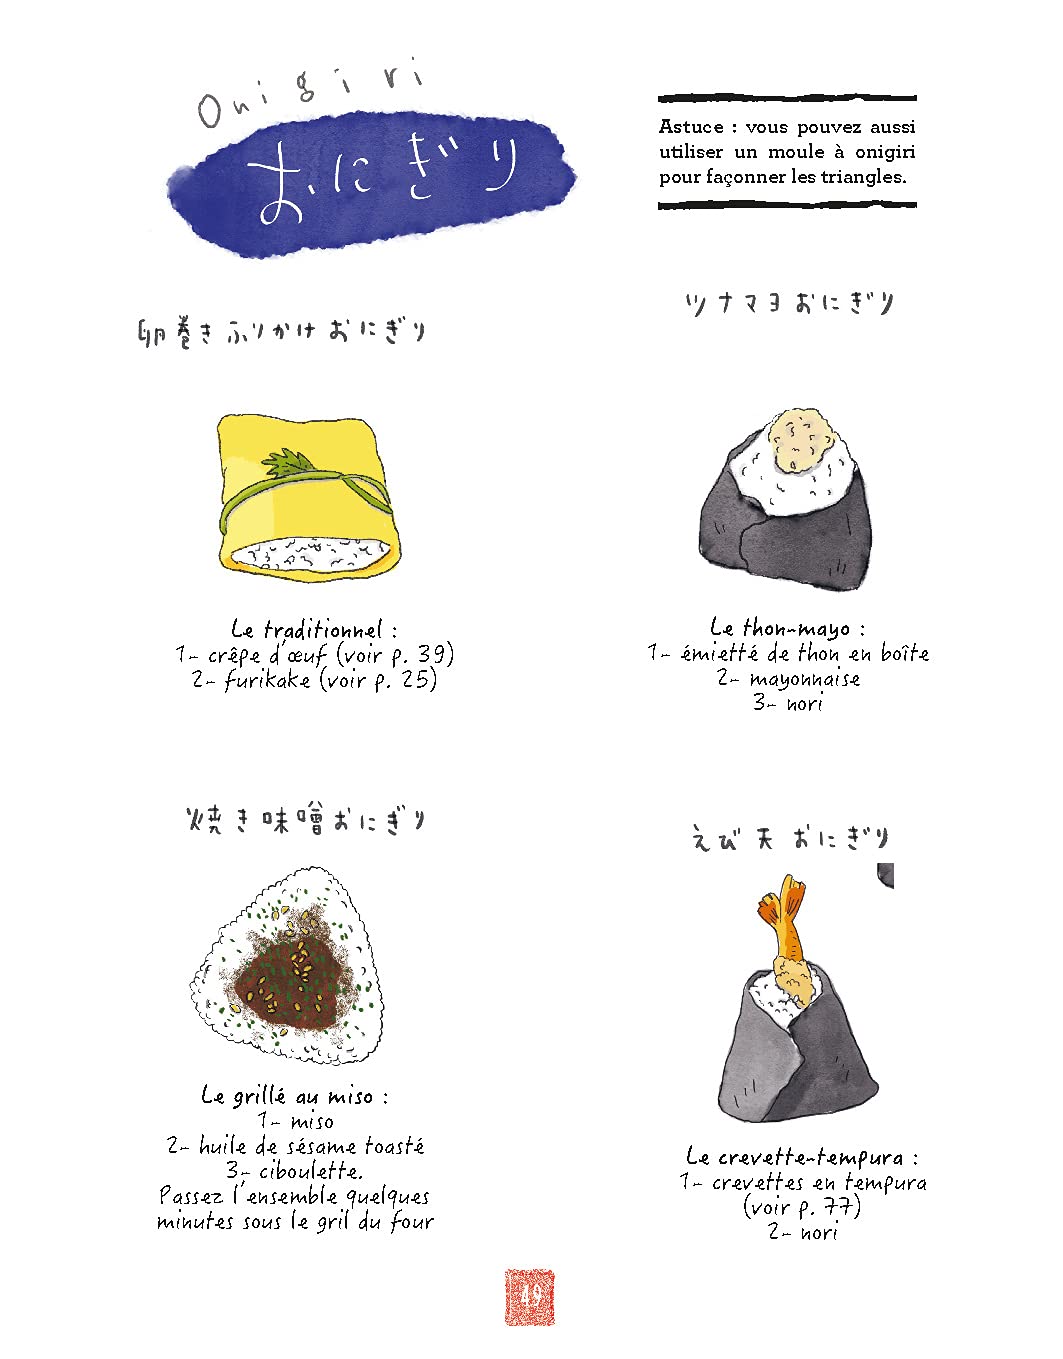 Onigiri
おにぎり
Astuce : vous pouvez aussi
utiliser un moule à onigiri
pour façonner les triangles.
卵巻きふりかけおにぎり
Le traditionnel :
1- crêpe d'œuf (voir p. 39)
2- furikake (voir p. 25)
ツナマヨおにぎり
Le thon-mayo :
1- émietté de thon en boîte
2- mayonnaise
3- nori
焼き味噌おにぎり
Le grillé au miso :
1- miso
2- huile de sésame toasté
3- ciboulette.
Passez l'ensemble quelques
minutes sous le gril du four
えび天おにぎり
Le crevette-tempura :
1- crevettes en tempura
(voir p. 77)
2- nori
49